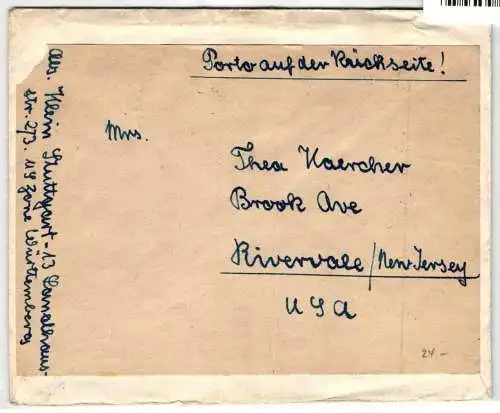 Porto auf der Rückseite!
Mrs.
Thea Kaercher
Brook Ave
Rivervale/New Jersey
USA
Abs. Klein Stuttgart-13
str. 273. US Zone Württemberg
24.-